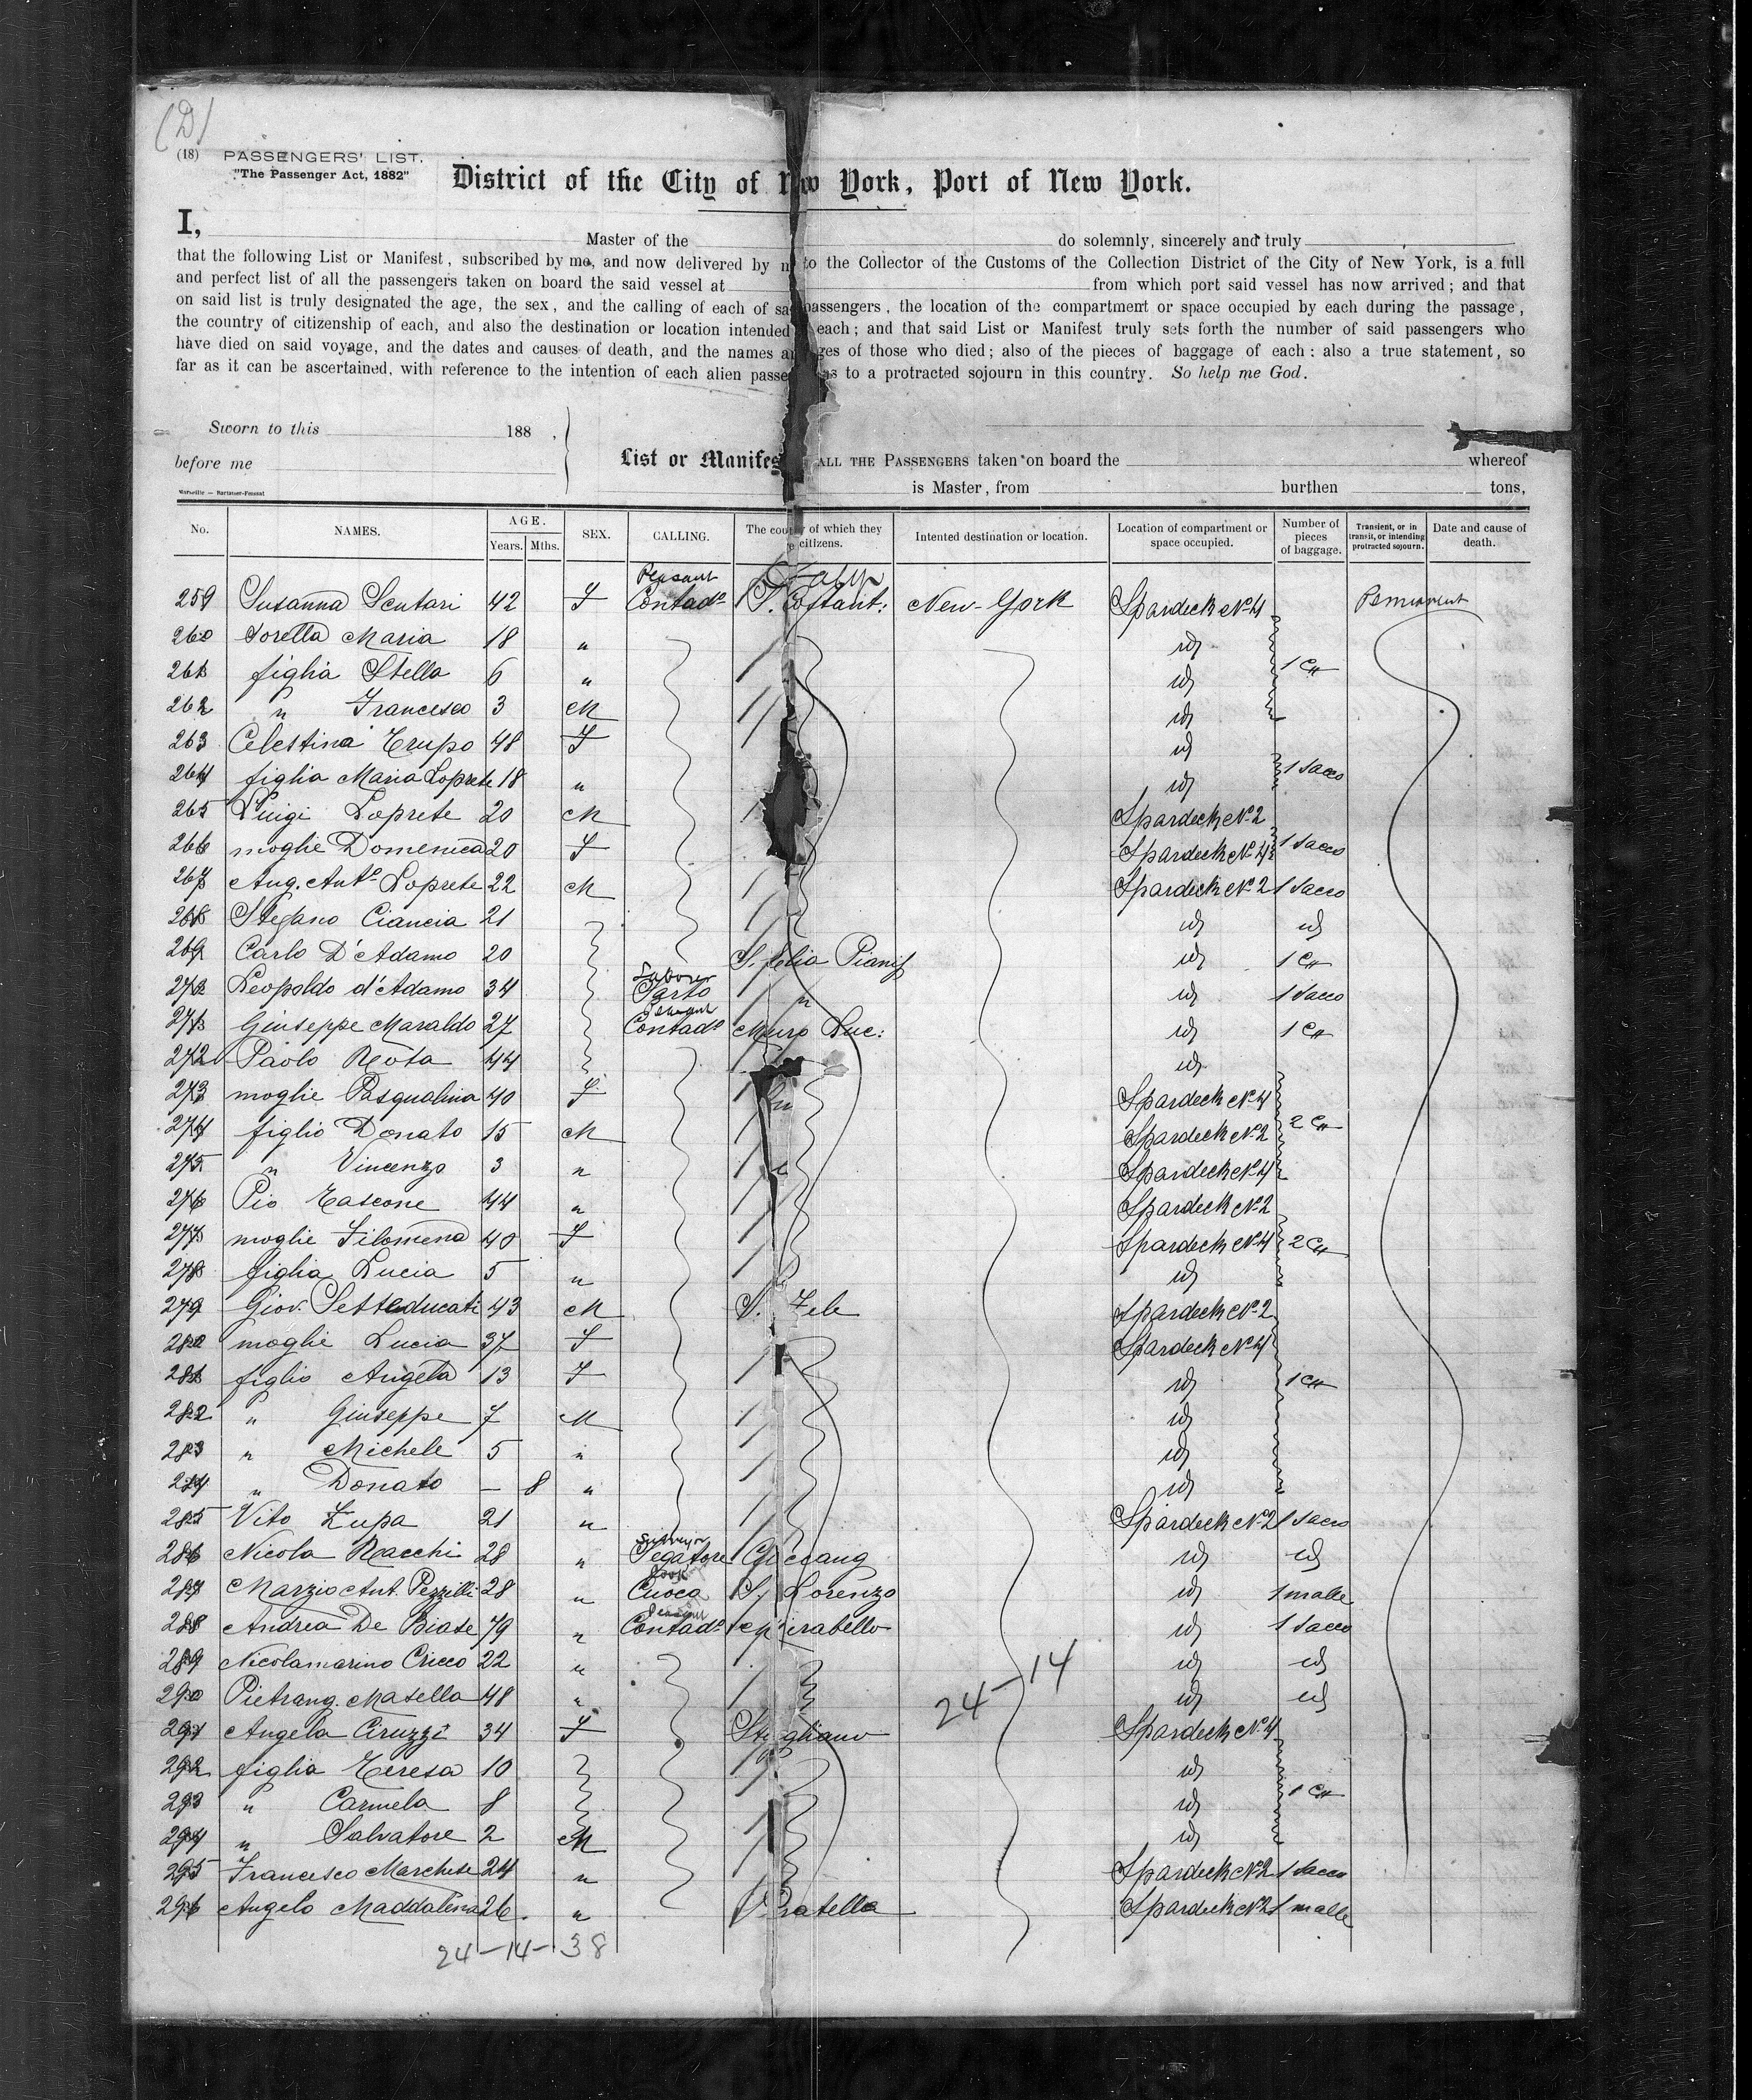 (D)
(18) PASSENGERS' LIST.
"The Passenger Act, 1882"
District of the City of New York, Port of New York.
I, Master of the do solemnly, sincerely and truly
that the following List or Manifest, subscribed by me, and now delivered by m to the Collector of the Customs of the Collection District of the City of New York, is a full
and perfect list of all the passengers taken on board the said vessel at from which port said vessel has now arrived; and that
on said list is truly designated the age, the sex, and the calling of each of sa passengers, the location of the compartment or space occupied by each during the passage,
the country of citizenship of each, and also the destination or location intended each; and that said List or Manifest truly sets forth the number of said passengers who
have died on said voyage, and the dates and causes of death, and the names a ges of those who died; also of the pieces of baggage of each: also a true statement, so
far as it can be ascertained, with reference to the intention of each alien passe as to a protracted sojourn in this country. So help me God.
Sworn to this 188 ,
before me
List or Manifes ALL THE PASSENGERS taken on board the whereof
is Master, from burthen tons,
Marseille —
No. NAMES. AGE. Years. Mths. SEX. CALLING. The cou of which they e citizens. Intented destination or location. Location of compartment or space occupied. Number of pieces of baggage. Transient, or in transit, or intending protracted sojourn. Date and cause of death.
Peasant Italy
259 Susanna Scutari 42 F Contado S. Costant: New-York Spardeck No 4 Permanent
260 Sorella Maria 18 " id
261 figlia Stella 6 " id 1 Cn
262 " Francesco 3 M id
263 Celestina Trupo 48 F id
264 figlia Maria Loprete 18 " id 1 Sacco
265 Luigi Loprete 20 M Spardeck No 2
266 moglie Domenica 20 F Spardeck No 4 1 Sacco
267 Ang. Anto Loprete 22 M Spardeck No 2 1 Sacco
268 Stefano Ciancia 21 id id
269 Carlo D'Adamo 20 S. Pianis id 1 Cn
Laborer
270 Leopoldo d'Adamo 34 Sarto " id 1 Sacco
Peasant
271 Giuseppe Maraldo 27 Contado Muro Luc: id 1 Cn
272 Paolo Nota 44 id
273 moglie Pasqualina 40 F Spardeck No 4
274 figlio Donato 15 M Spardeck No 2 2 Cn
275 " Vincenzo 3 " Spardeck No 4
276 Pio Tascone 44 " Spardeck No 2
277 moglie Filomena 40 F Spardeck No 4 2 Cn
278 figlia Lucia 5 " id
279 Giov. Setteducati 43 M S. Fele Spardeck No 2
280 moglie Lucia 37 F Spardeck No 4
281 figlio Angela 13 F id 1 Cn
282 " Giuseppe 7 M id
283 " Michele 5 " id
284 " Donato — 8 " id
285 Vito Zupa 21 " Spardeck No 2 1 Sacco
286 Nicola Racchi 28 " Segatore id id
Cook
287 Marzio Ant. Pezzilli 28 " Cuoco S. Lorenzo id 1 malle
Peasant
288 Andrea De Biase 79 " Contado irabello id 1 Sacco
289 Nicolamarino Cricco 22 " id id
290 Pietrang. Matella 48 " id id
24-14
291 Angela Ciruzzi 34 F Stigliano Spardeck No 4
292 figlia Teresa 10 id
293 " Carmela 8 id 1 Cn
294 " Salvatore 2 M id
295 Francesco Marchese 24 " Spardeck No 2 1 Sacco
296 Angelo Maddalena 26 " Pratella Spardeck No 2 1 malle
24-14-38